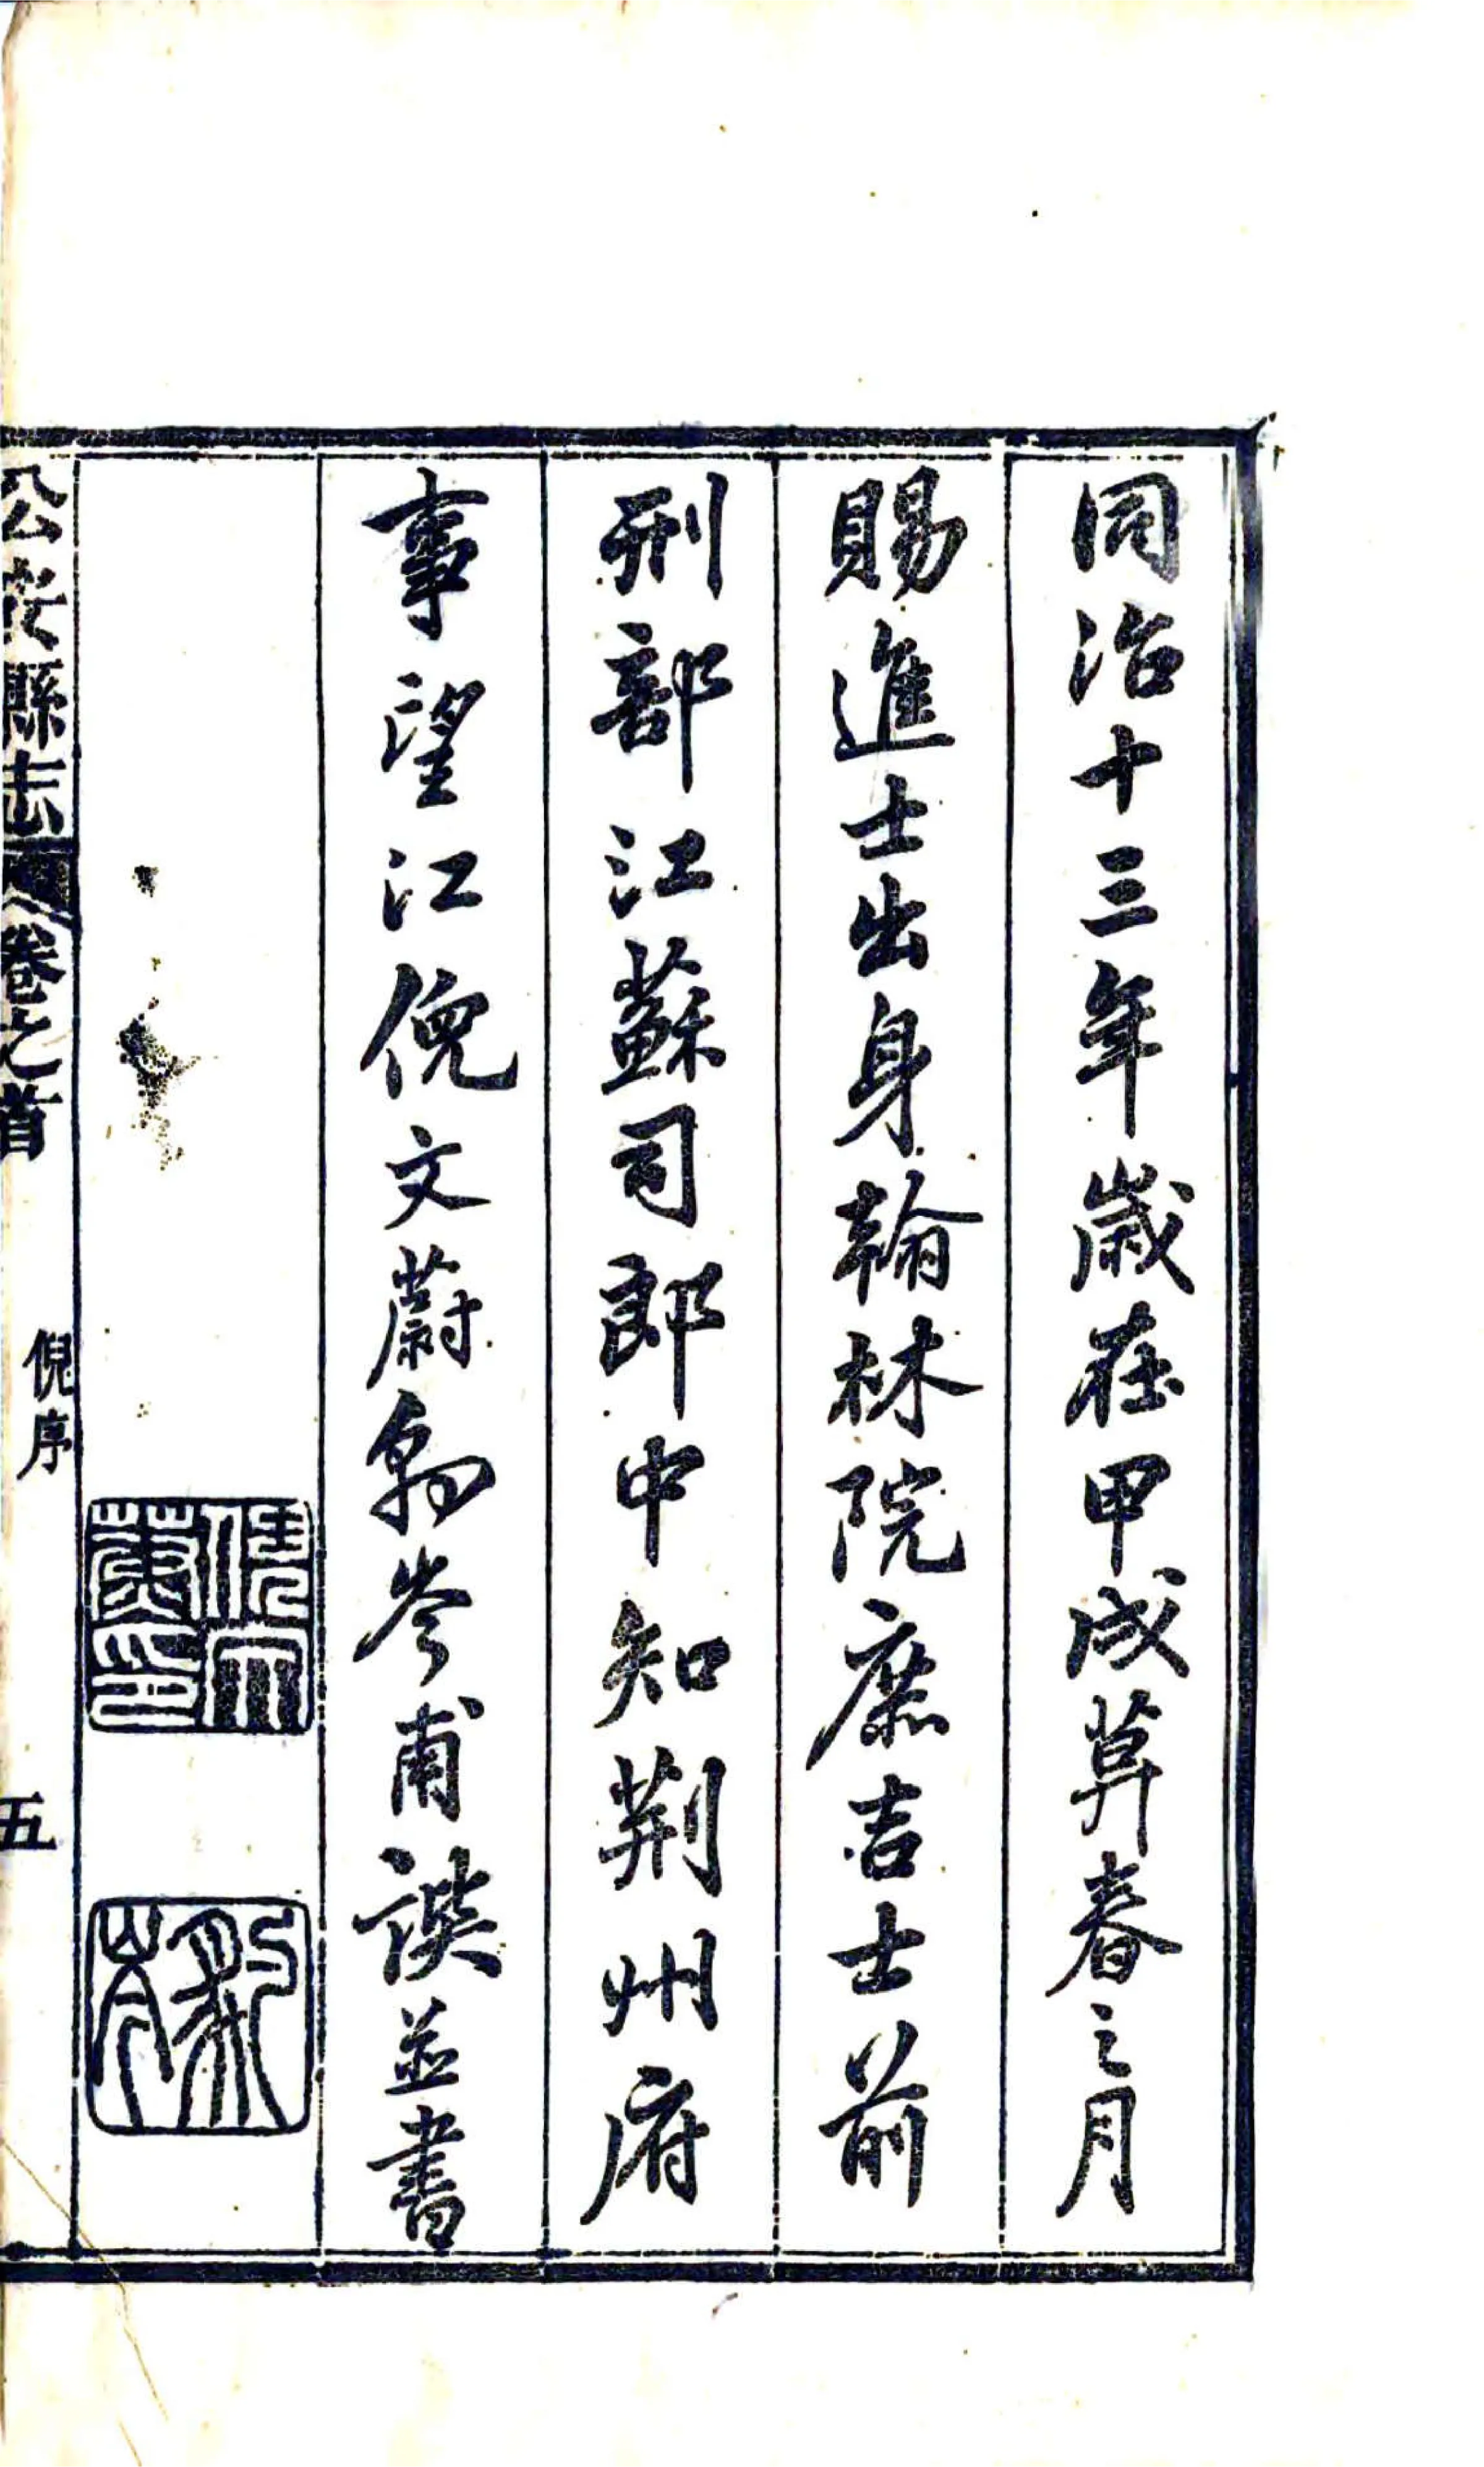 同治十三年歲在甲戌莫春之月
賜進士出身翰林院庶吉士前
刑部江蘇司郎中知荊州府
事望江倪文蔚豹岑甫譔並書
倪文
蔚印
豹
岑
公安縣志
卷之首
倪序
五